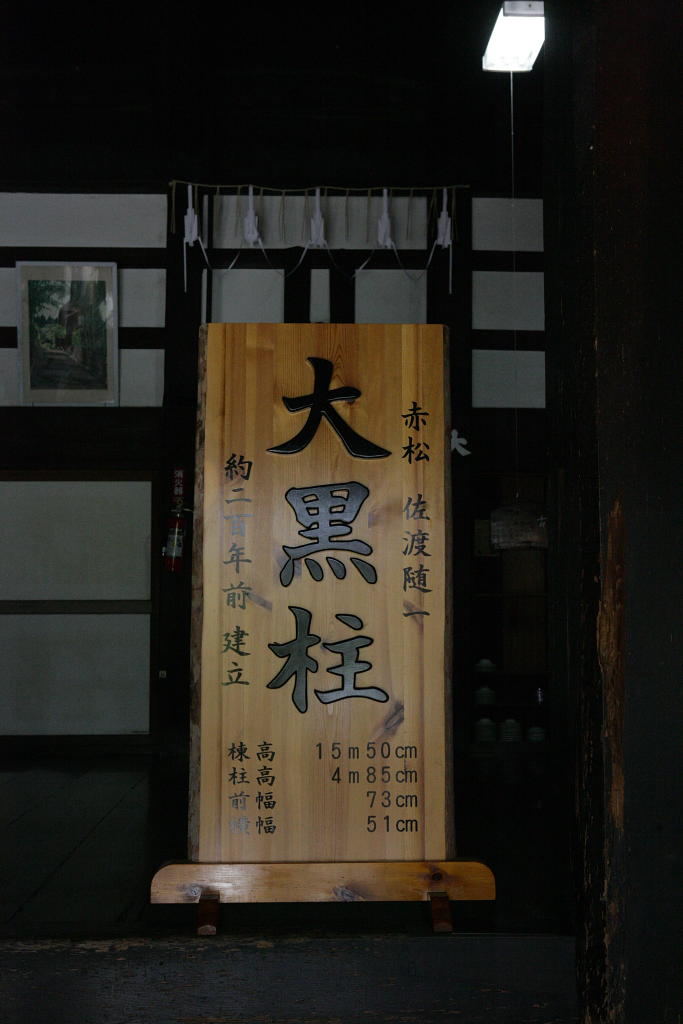 赤松 佐渡随一
大黒柱
約二百年前 建立
棟高 15m50cm
柱高 4m85cm
前幅 73cm
横幅 51cm
消火器